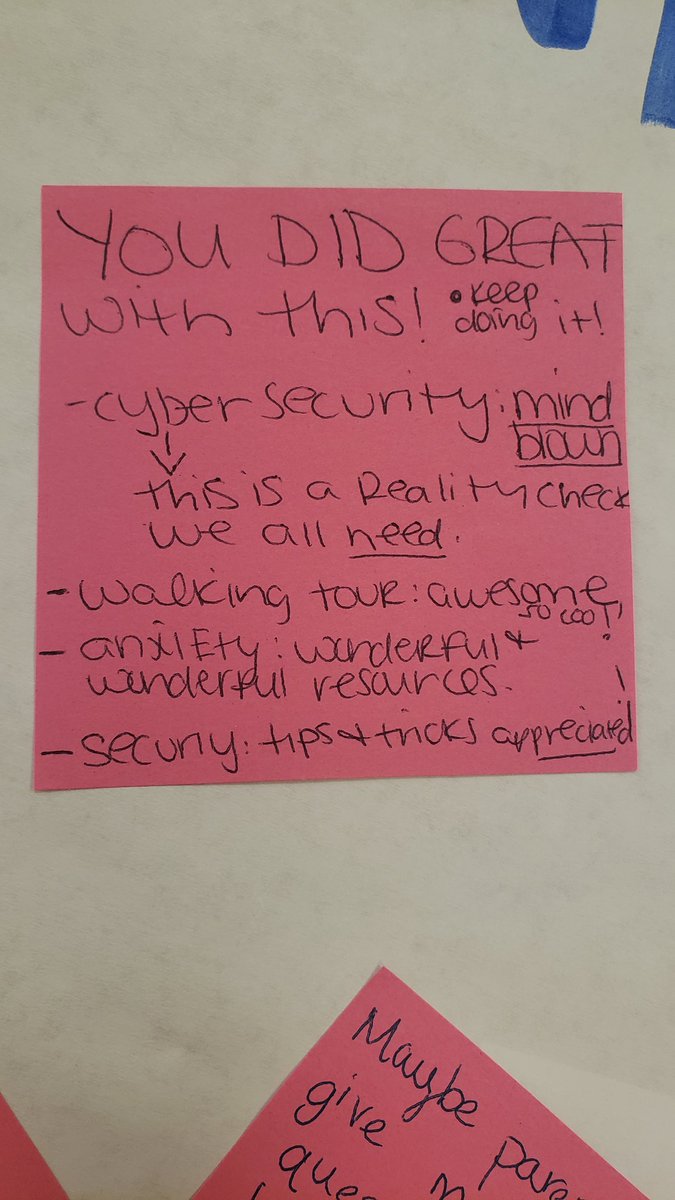 YOU DID GREAT
with this! • keep
doing it!
- cyber security: mind
blown
this is a Reality check
we all need.
- walking tour: awesome,
so cool!
- anxiEty: wonderful +
wonderful resources.
- securiy: tips + tricks appreciated!
Maybe
give